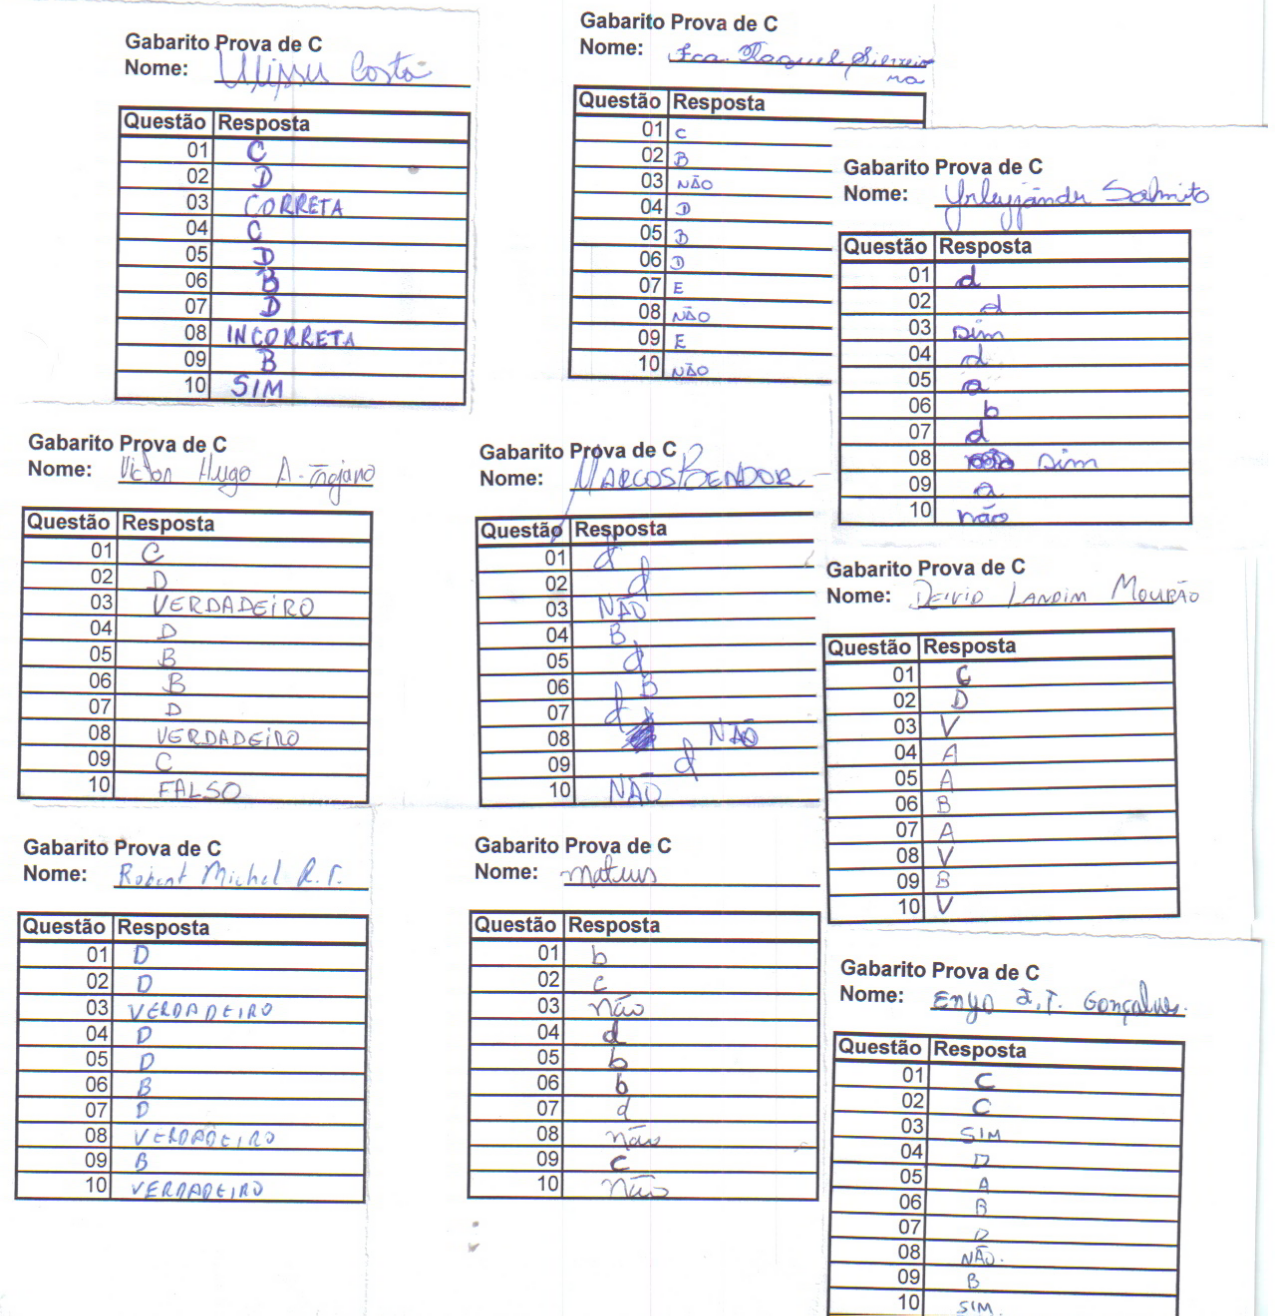 Gabarito Prova de C
Nome: Costa
Questão Resposta
01 C
02 D
03 CORRETA
04 C
05 D
06 B
07 D
08 INCORRETA
09 B
10 SIM
Gabarito Prova de C
Nome: Fca. Raquel
Questão Resposta
01 C
02 B
03 NÃO
04 D
05 B
06 D
07 E
08 NÃO
09 E
10 NÃO
Gabarito Prova de C
Nome: Salmito
Questão Resposta
01 d
02 d
03 sim
04 d
05 a
06 b
07 d
08 sim
09 a
10 não
Gabarito Prova de C
Nome: Victor Hugo A.
Questão Resposta
01 C
02 D
03 VERDADEIRO
04 D
05 B
06 B
07 D
08 VERDADEIRO
09 C
10 FALSO
Gabarito Prova de C
Nome: MARCOS BENDOR
Questão Resposta
01 d
02 d
03 NÃO
04 B
05 d
06 B
07 d
08 NÃO
09 d
10 NÃO
Gabarito Prova de C
Nome: DEIVID LANDIM MOURÃO
Questão Resposta
01 C
02 D
03 V
04 A
05 A
06 B
07 A
08 V
09 B
10 V
Gabarito Prova de C
Nome: Robert Michel R. F.
Questão Resposta
01 D
02 D
03 VERDADEIRO
04 D
05 D
06 B
07 D
08 VERDADEIRO
09 B
10 VERDADEIRO
Gabarito Prova de C
Nome: Mateus
Questão Resposta
01 b
02 c
03 não
04 d
05 b
06 b
07 d
08 não
09 c
10 não
Gabarito Prova de C
Nome: Enyo J.T. Gonçalves.
Questão Resposta
01 C
02 C
03 SIM
04 D
05 A
06 B
07 D
08 NÃO.
09 B
10 SIM.